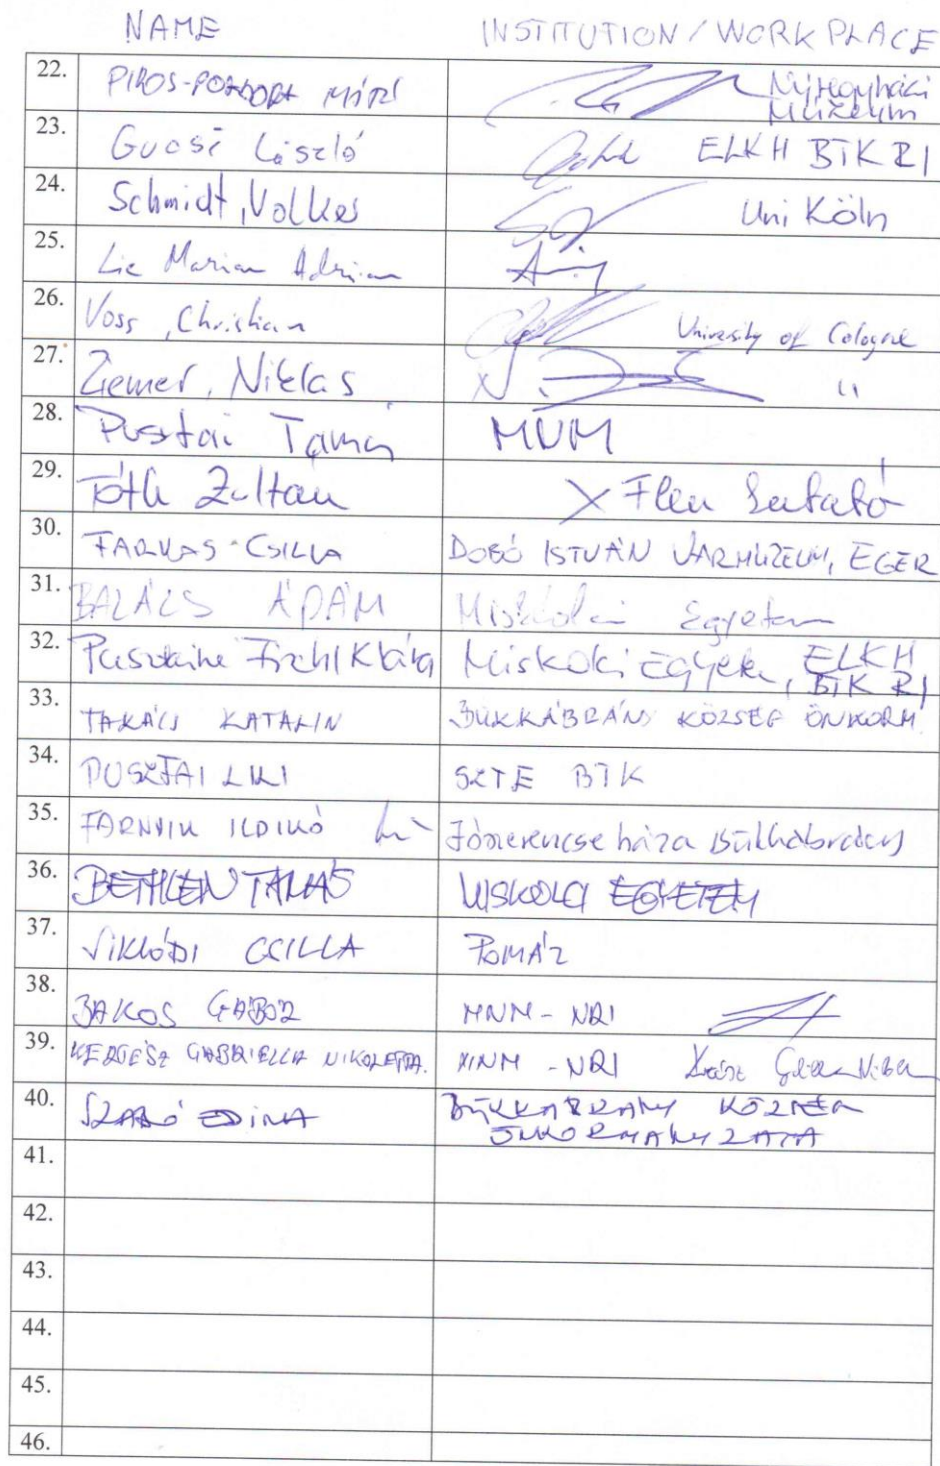 NAME INSTITUTION / WORK PLACE
22. PIROS- Nyíregyházi
Múzeum
23. Gucsi László ELKH BTK RI
24. Schmidt, Volker Uni Köln
25. Lie Marian Adrian
26. Voss, Christian University of Cologne
27. Ziemer, Niklas X "
28. Pusztai Tamás MNM
29. Tóth Zoltán X
30. FARKAS CSILLA DOBÓ ISTVÁN VÁRMÚZEUM, EGER
31. BALÁZS ÁDÁM Miskolci Egyetem
32. Pusztainé Fischl Klára Miskolci Egyetem, ELKH
BTK RI
33. TAKÁCS KATALIN BÜKKÁBRÁNY KÖZSÉG ÖNKORM.
34. PUSZTAI LILI SZTE BTK
35. ILDIKÓ Jószerencse háza Bükkábrány
36. BETHLEN TAMÁS MISKOLCI EGYETEM
37. SIKLÓDI CSILLA POMÁZ
38. BAKOS GÁBOR MNM - NRI
39. KERTÉSZ GABRIELLA NIKOLETTA. MNM - NRI
40. SZABÓ EDINA BÜKKÁBRÁNY KÖZSÉG
ÖNKORMÁNYZATA
41.
42.
43.
44.
45.
46.